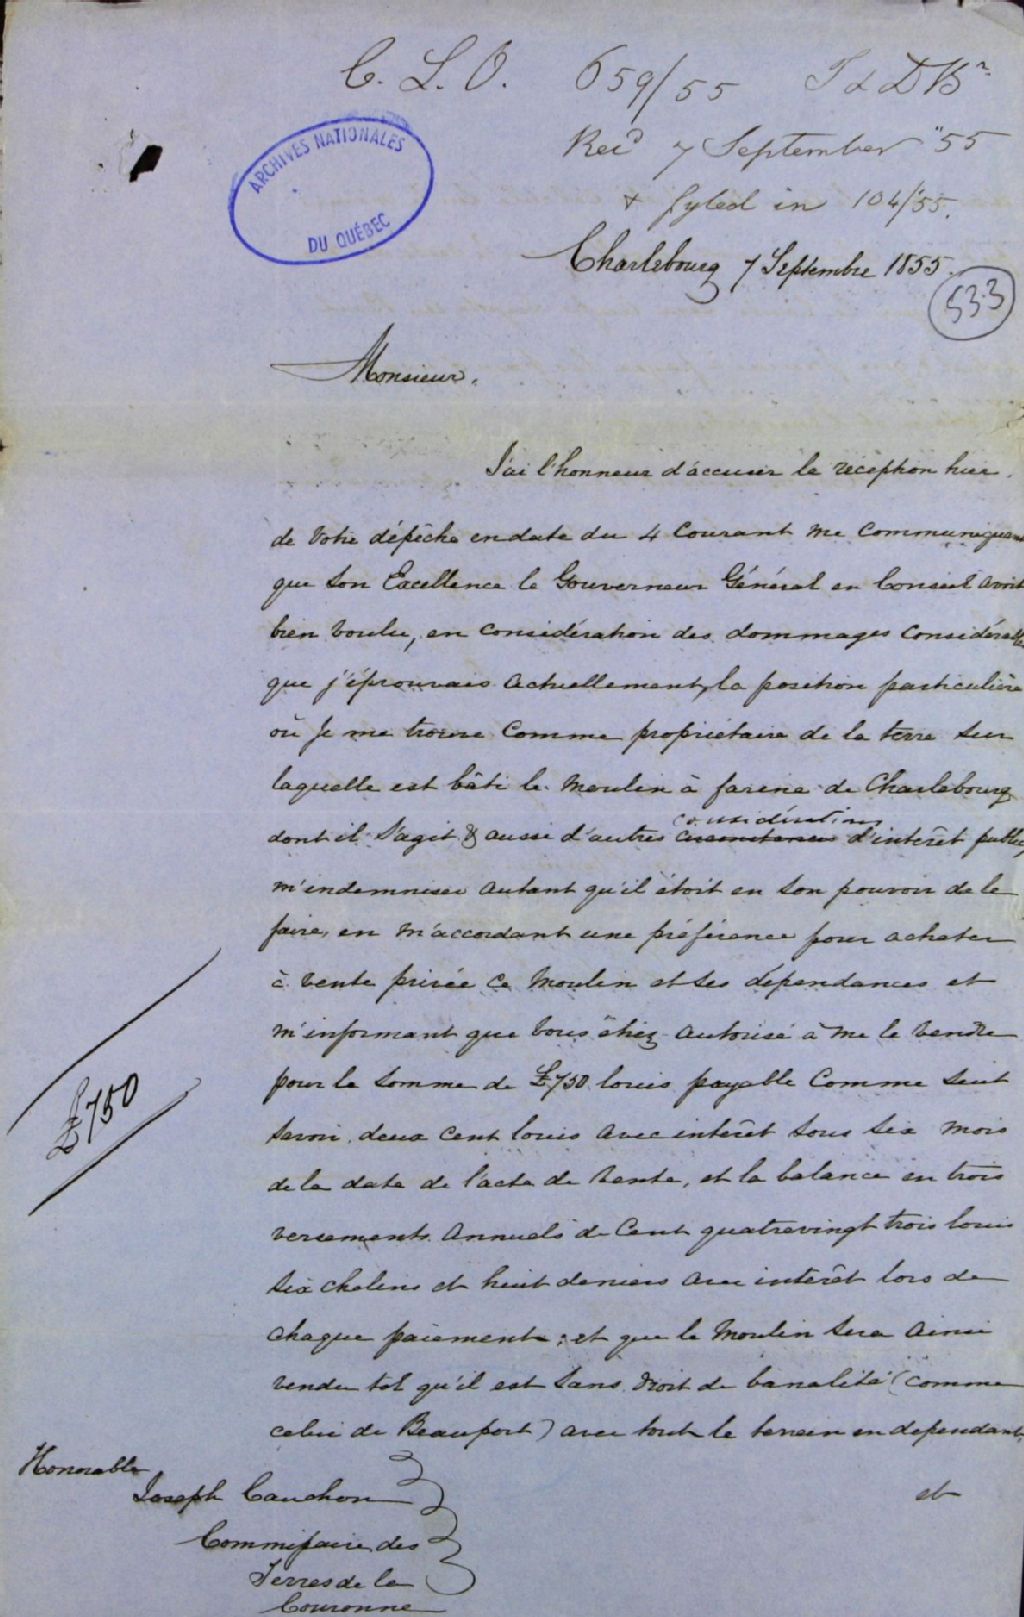 C. L. O. 659/55 J & D Br
Recd 7 September "55
& fyled in 104/55.
ARCHIVES NATIONALES
DU QUÉBEC
Charlebourg 7 Septembre 1855.
533
Monsieur,
J'ai l'honneur d'accuser la réception hier
de votre dépêche en date du 4 Courant me communiquant
que Son Excellence le Gouverneur Général en Conseil avoit
bien voulu, en considération des dommages considérables
que j'éprouvais actuellement, la position particulière
où je me trouve comme propriétaire de la terre sur
laquelle est bâti le moulin à farine de Charlebourg
considérations
dont il s'agit & aussi d'autres circonstances d'intérêt public,
m'indemniser autant qu'il étoit en son pouvoir de le
faire, en m'accordant une préférence pour acheter
à vente privée ce Moulin et ses dépendances et
m'informant que vous étiez autorisé à me le vendre
pour la somme de £750 louis payable comme suit
£750
savoir, deux cent louis avec intérêt sous six mois
de la date de l'acte de vente, et la balance en trois
versements annuels de Cent quatrevingt trois louis
six chelins et huit deniers avec intérêt lors de
chaque paiement; et que le Moulin sera ainsi
vendu tel qu'il est sans droit de banalité (comme
celui de Beauport) avec tout le terrein en dependant,
et
Honorable
Joseph Cauchon
Commissaire des
Terres de la
Couronne